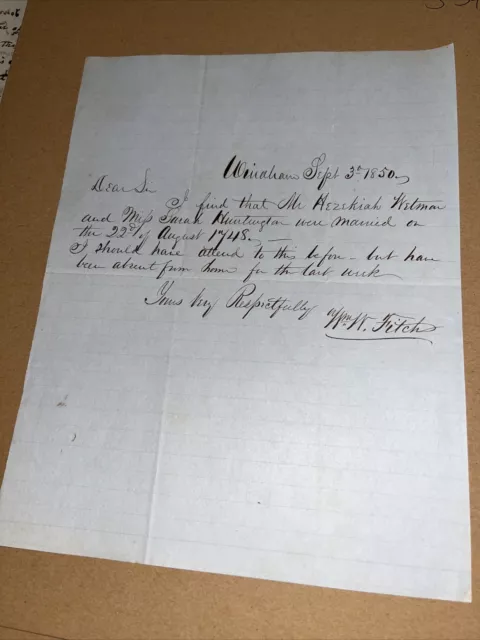 Windham Sept 3d 1850
Dear Sir
I find that Mr Hezekiah Wetmore
and Miss Sarah Huntington were married on
the 22d of August 1748. —
I should have attend to this before - but have
been absent from home for the last week
Yours very Respectfully
Wm W. Fitch